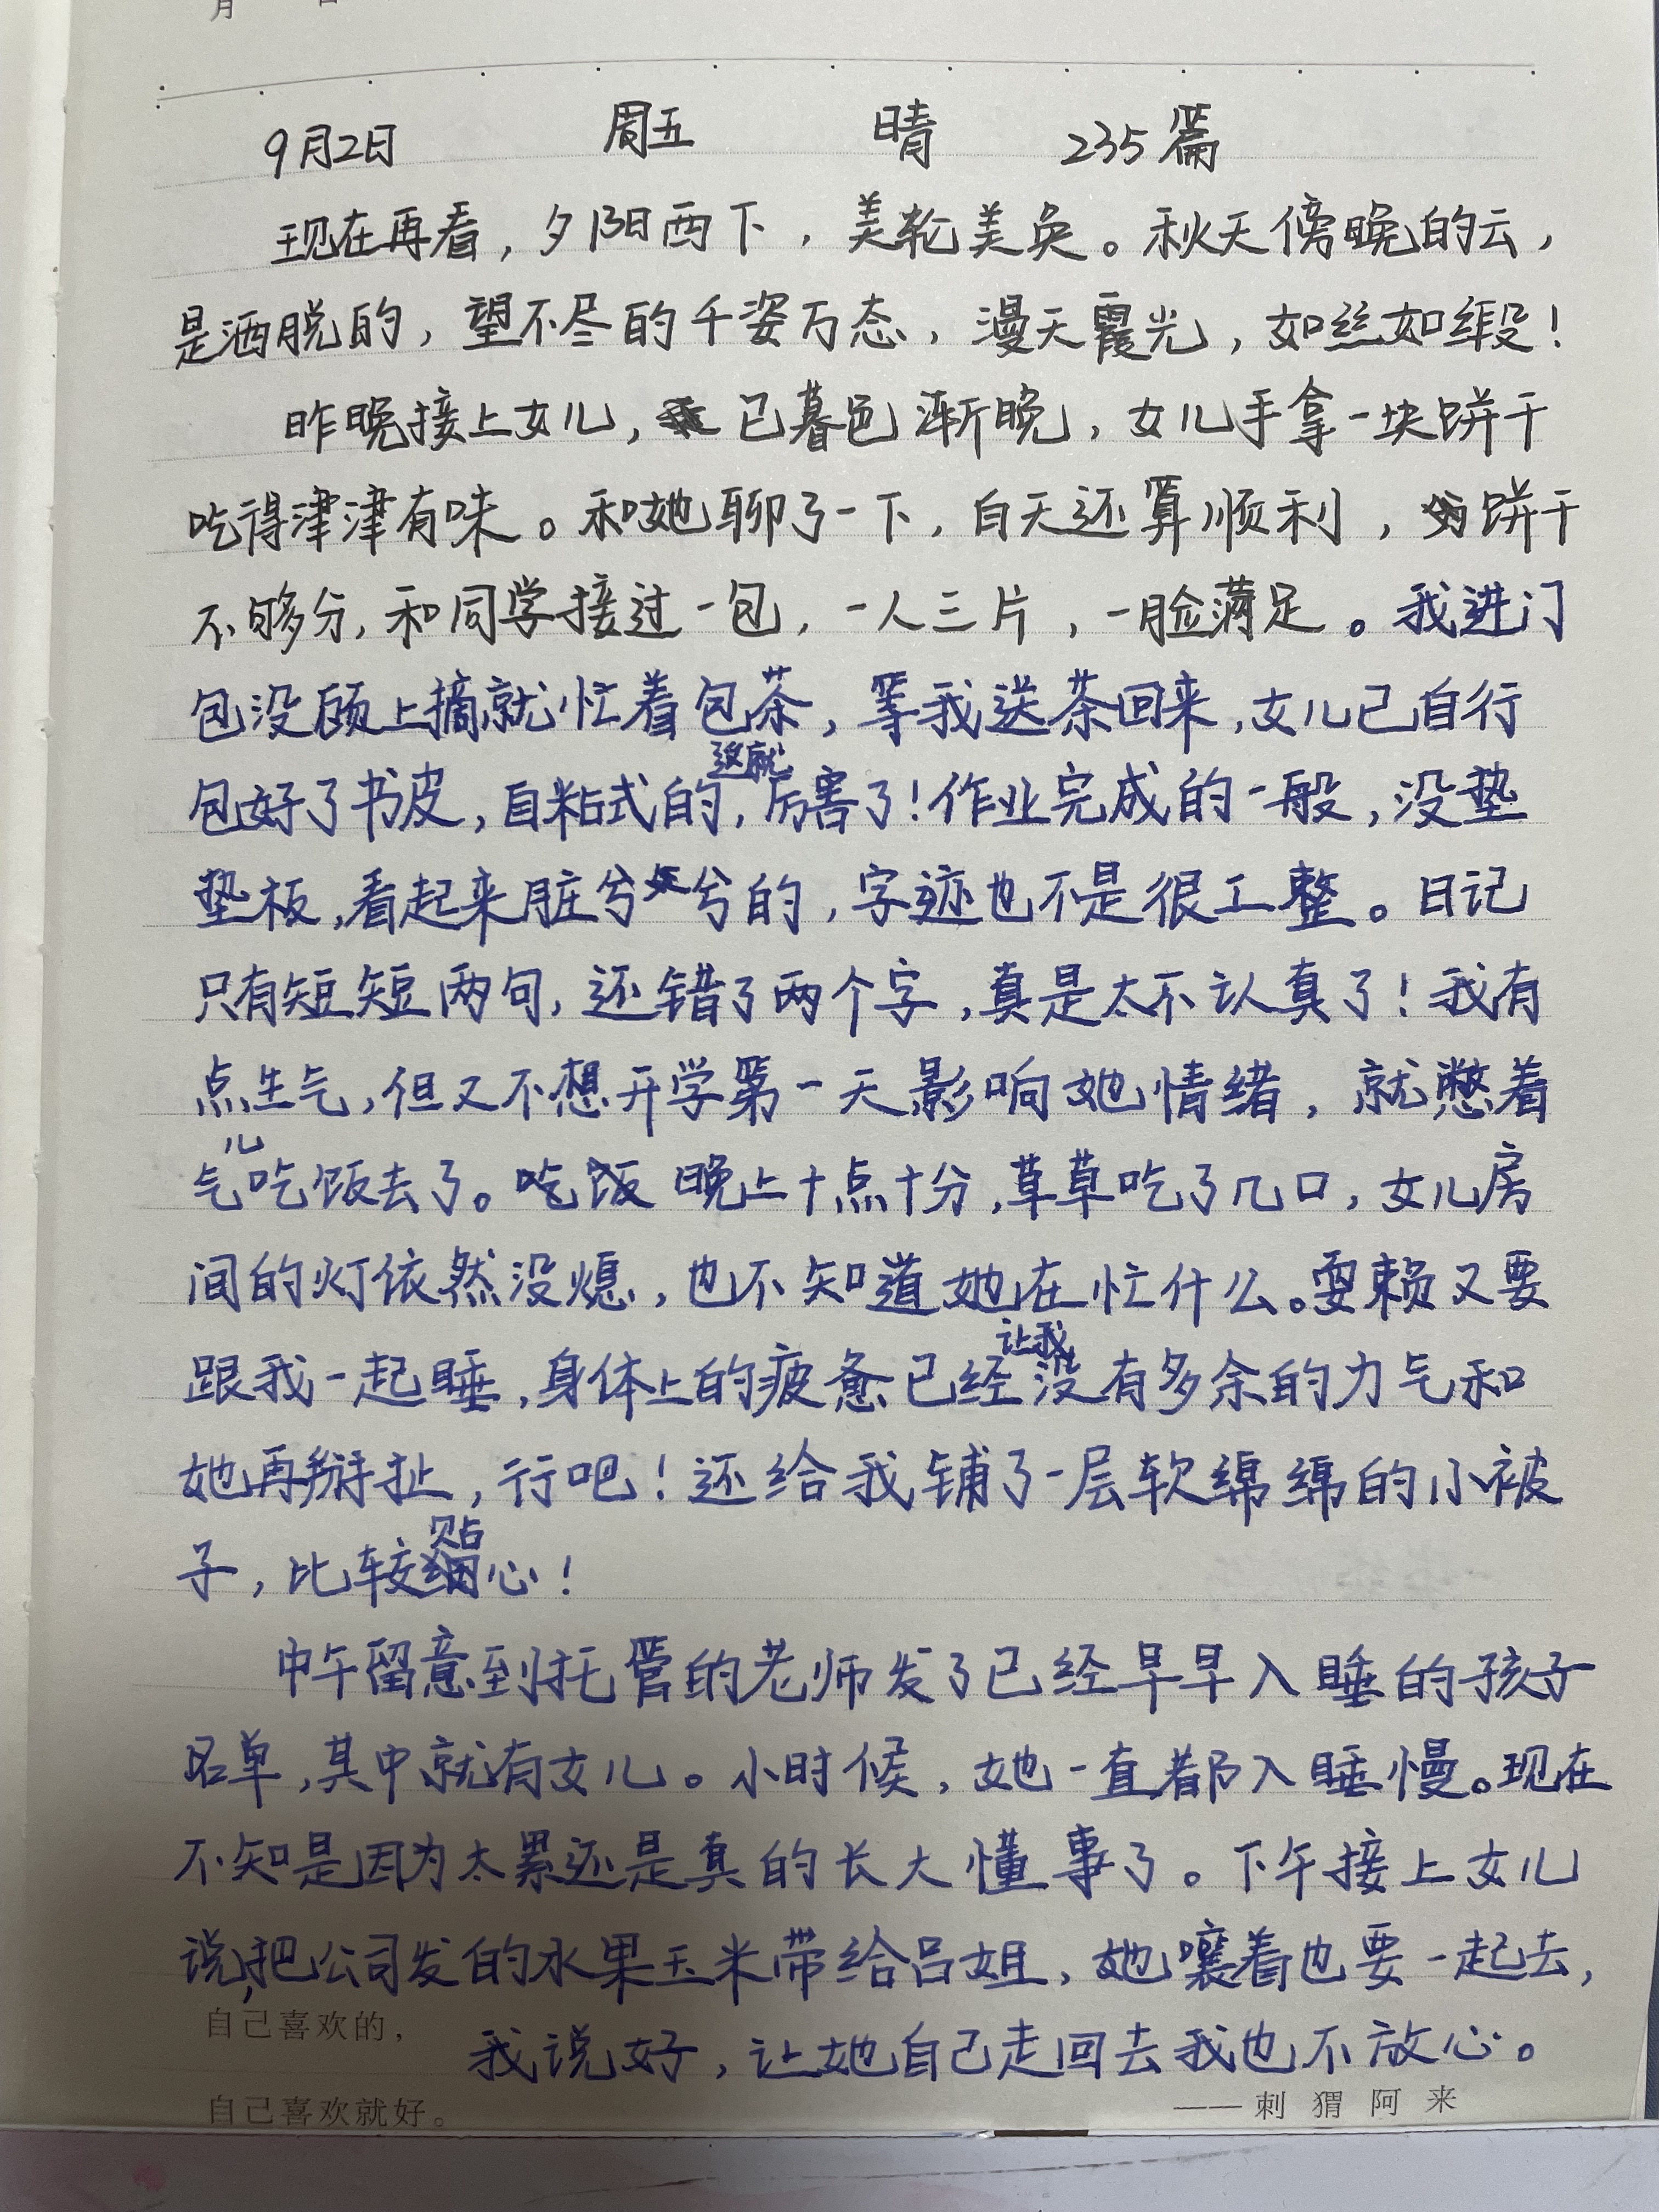 月 日
9月2日 周五 晴 235篇
现在再看，夕阳西下，美轮美奂。秋天傍晚的云，
是洒脱的，望不尽的千姿万态，漫天霞光，如丝如缎！
昨晚接上女儿，已暮色渐晚，女儿手拿一块饼干
吃得津津有味。和她聊了一下，白天还算顺利，饼干
不够分，和同学接过一包，一人三片，一脸满足。我进门
包没顾上摘就忙着包茶，等我送茶回来，女儿已自行
包好了书皮，自粘式的，这就厉害了！作业完成的一般，没垫
垫板，看起来脏兮兮的，字迹也不是很工整。日记
只有短短两句，还错了两个字，真是太不认真了！我有
点生气，但又不想开学第一天影响她情绪，就憋着
气儿吃饭去了。吃饭晚上十点十分，草草吃了几口，女儿房
间的灯依然没熄，也不知道她在忙什么。耍赖又要
跟我一起睡，身体上的疲惫已经让我没有多余的力气和
她再掰扯，行吧！还给我铺了一层软绵绵的小被
子，比较贴心！
中午留意到托管的老师发了已经早早入睡的孩子
名单，其中就有女儿。小时候，她一直都入睡慢。现在
不知是因为太累还是真的长大懂事了。下午接上女儿
说，把公司发的水果玉米带给吕姐，她嚷着也要一起去，
自己喜欢的，
我说好，让她自己走回去我也不放心。
自己喜欢就好。
——刺猬阿来